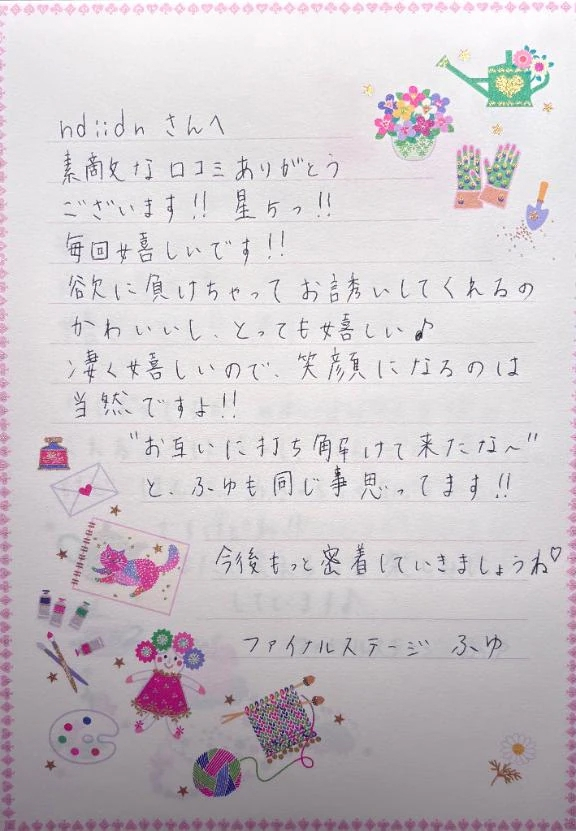 ndiidnさんへ
素敵な口コミありがとう
ございます!! 星5つ!!
毎回嬉しいです!!
欲に負けちゃってお誘いしてくれるの
かわいいし、とっても嬉しい♪
凄く嬉しいので、笑顔になるのは
当然ですよ!!
"お互いに打ち解けて来たな〜"
と、ふゆも同じ事思ってます!!
今後もっと密着していきましょうね♡
ファイナルステージ ふゆ